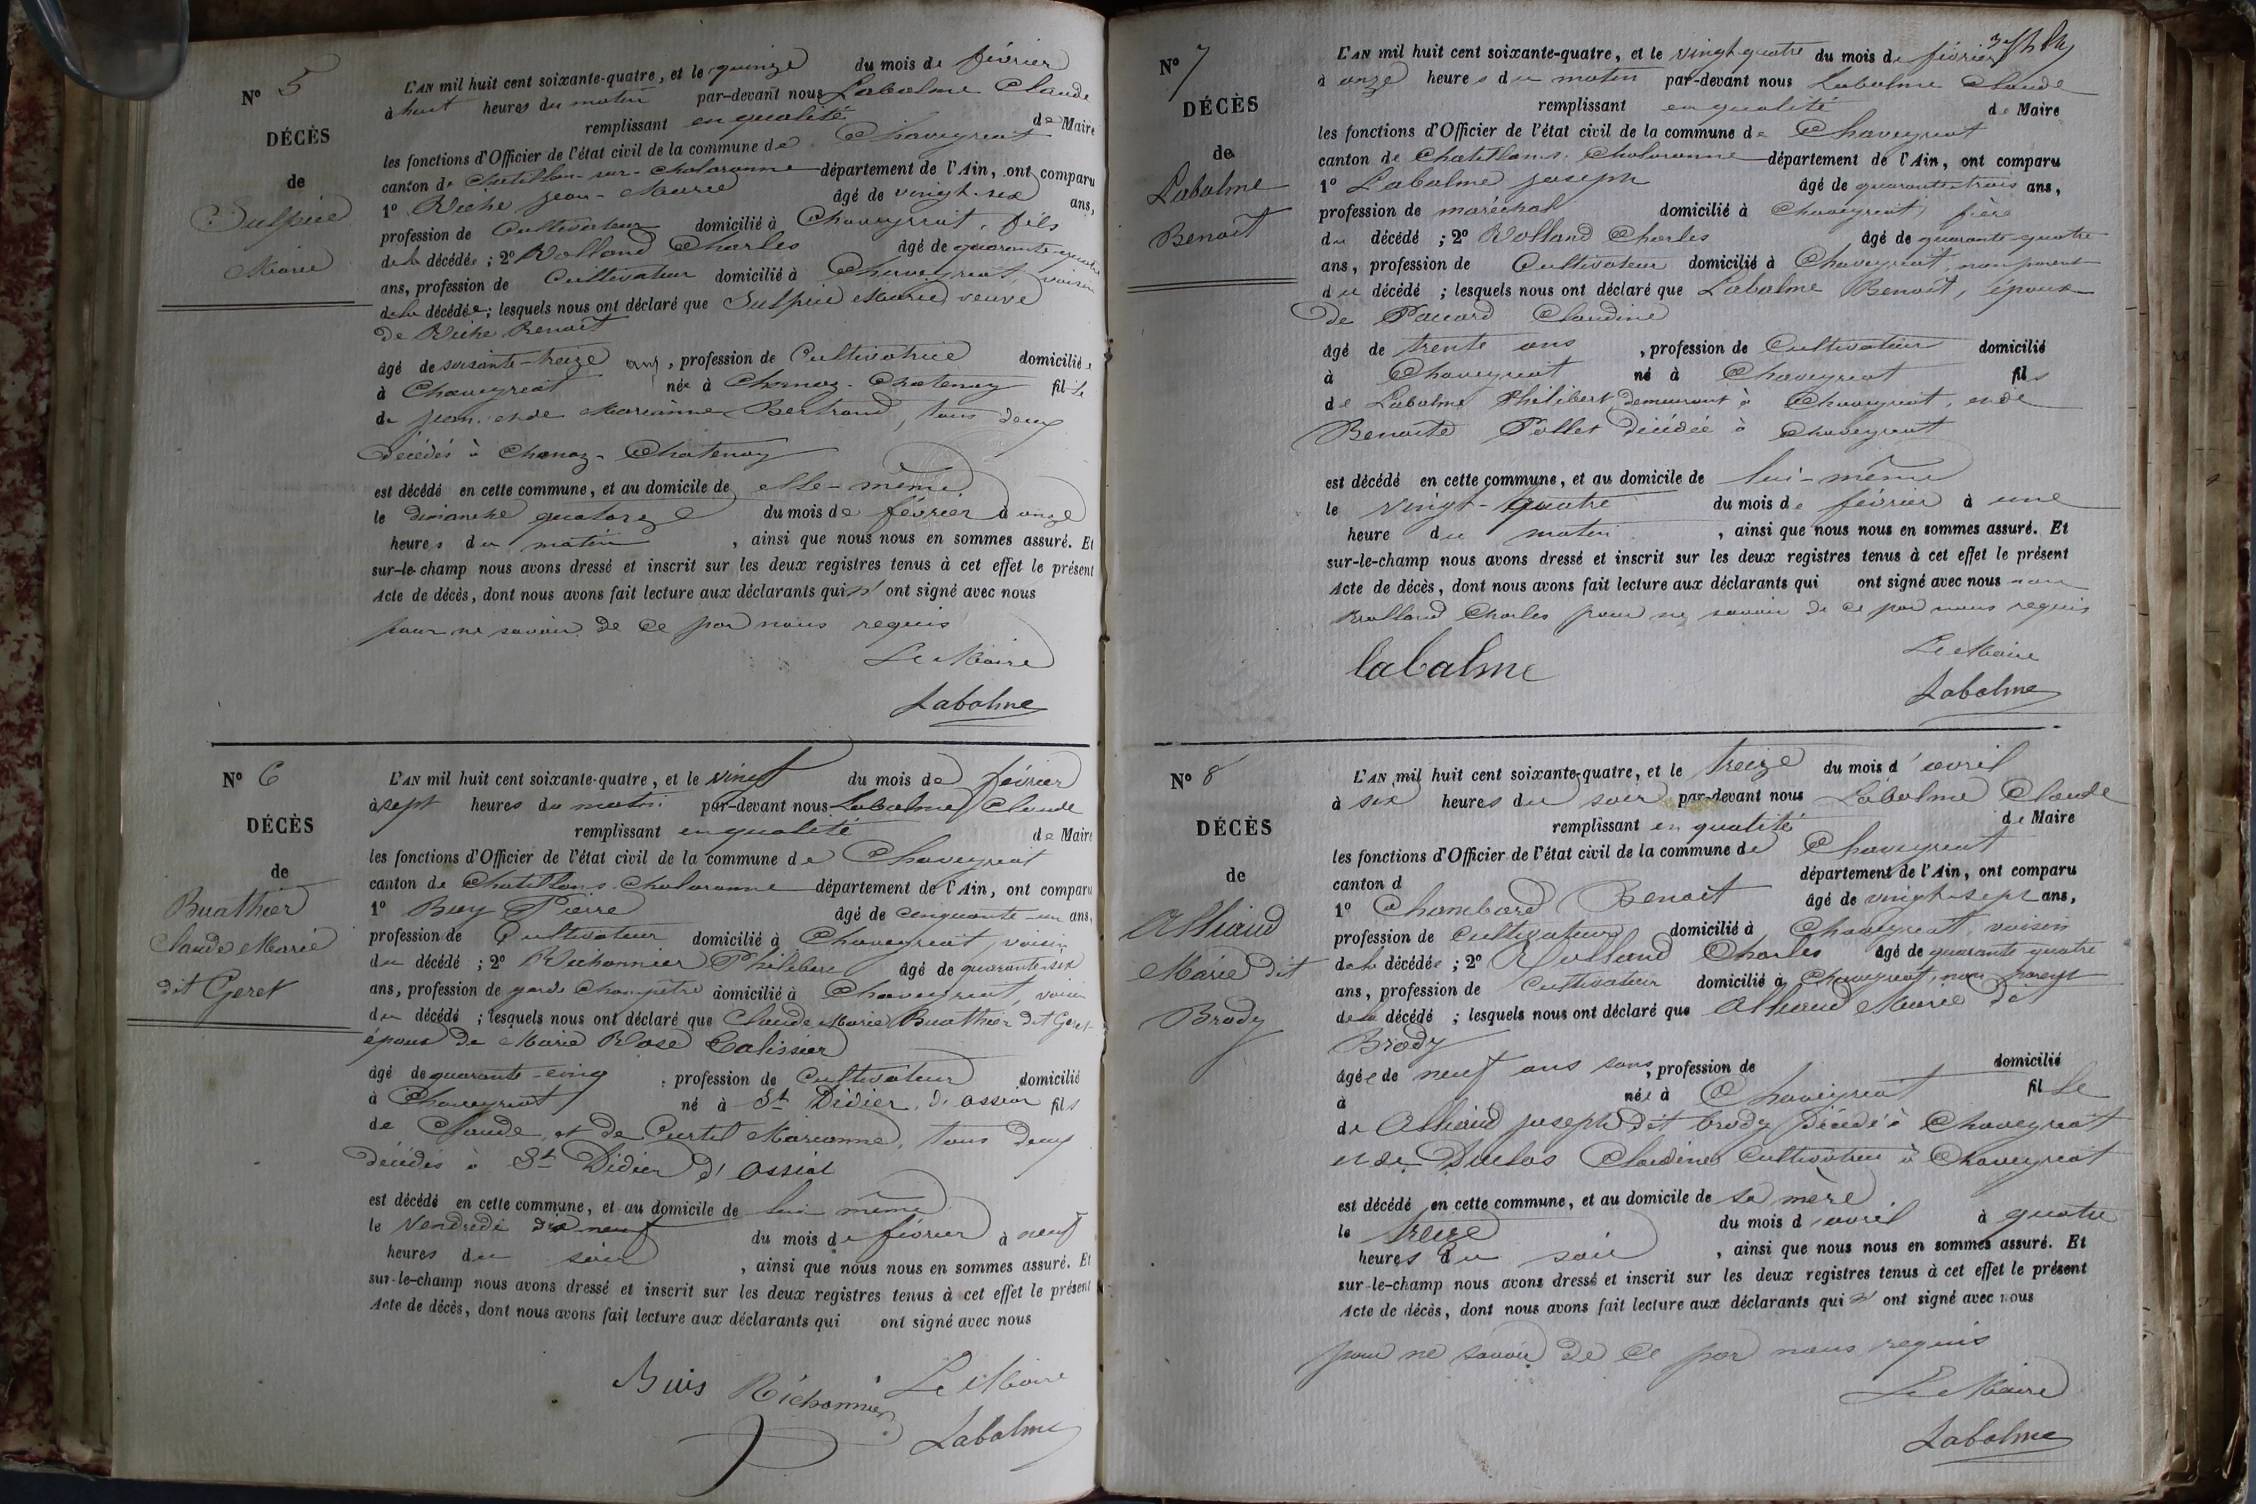 N° 5
DÉCÈS
de
Sulpice
Marie
L'AN mil huit cent soixante-quatre, et le quinze du mois de février
à huit heures du matin par-devant nous Labalme Claude
remplissant en qualité de Maire
les fonctions d'Officier de l'état civil de la commune de Chaveyriat
canton de Chatillon-sur-Chalaronne département de l'Ain, ont comparu
1° Riche Jean-Marie âgé de vingt-six ans,
profession de Cultivateur domicilié à Chaveyriat, fils
de la décédée ; 2° Rolland Charles âgé de quarante-quatre
ans, profession de Cultivateur domicilié à Chaveyriat, voisin
de la décédée ; lesquels nous ont déclaré que Sulpice Marie veuve
de Riche Benoit
âgé de soixante-treize ans, profession de Cultivatrice domiciliée
à Chaveyriat née à Chanoz-Chatenay fille
de Jean, et de Marianne Bertrand, tous deux
décédés à Chanoz-Chatenay
est décédé en cette commune, et au domicile de elle-même
le dimanche quatorze du mois de février à onze
heures du matin, ainsi que nous nous en sommes assuré. Et
sur-le-champ nous avons dressé et inscrit sur les deux registres tenus à cet effet le présent
Acte de décès, dont nous avons fait lecture aux déclarants qui n'ont signé avec nous
pour ne savoir de ce par nous requis
Le Maire
Labalme
N° 6
DÉCÈS
de
Buathier
Claude Marie
dit Geret
L'AN mil huit cent soixante-quatre, et le vingt du mois de février
à sept heures du matin par-devant nous Labalme Claude
remplissant en qualité de Maire
les fonctions d'Officier de l'état civil de la commune de Chaveyriat
canton de Chatillon s. Chalaronne département de l'Ain, ont comparu
1° Buy Pierre âgé de cinquante-un ans,
profession de Cultivateur domicilié à Chaveyriat, voisin
du décédé ; 2° Richonnier Philibert âgé de quarante-six
ans, profession de garde champêtre domicilié à Chaveyriat, voisin
du décédé ; lesquels nous ont déclaré que Claude Marie Buathier dit Geret
époux de Marie Rose Calissier
âgé de quarante-cinq, profession de Cultivateur domicilié
à Chaveyriat né à St Didier, d'Aussiat fils
de Claude, et de Curtil Marianne, tous deux
décédés à St Didier d'Aussiat
est décédé en cette commune, et au domicile de lui même
le Vendredi dix neuf du mois de février à neuf
heures du soir, ainsi que nous nous en sommes assuré. Et
sur-le-champ nous avons dressé et inscrit sur les deux registres tenus à cet effet le présent
Acte de décès, dont nous avons fait lecture aux déclarants qui ont signé avec nous
Buis Richonnier Le Maire
Labalme
N° 7
DÉCÈS
de
Labalme
Benoit
L'AN mil huit cent soixante-quatre, et le vingt-quatre du mois de février
à onze heures du matin par-devant nous Labalme Claude
remplissant en qualité de Maire
les fonctions d'Officier de l'état civil de la commune de Chaveyriat
canton de Chatillon s. Chalaronne département de l'Ain, ont comparu
1° Labalme Joseph âgé de quarante-trois ans,
profession de maréchal domicilié à Chaveyriat, frère
du décédé ; 2° Rolland Charles âgé de quarante-quatre
ans, profession de Cultivateur domicilié à Chaveyriat, non parent
du décédé ; lesquels nous ont déclaré que Labalme Benoit, époux
de Pauard Claudine
âgé de trente ans, profession de Cultivateur domicilié
à Chaveyriat né à Chaveyriat fils
de Labalme Philibert demeurant à Chaveyriat, et de
Benoite Pollet décédée à Chaveyriat
est décédé en cette commune, et au domicile de lui-même
le vingt-quatre du mois de février à une
heure du matin, ainsi que nous nous en sommes assuré. Et
sur-le-champ nous avons dressé et inscrit sur les deux registres tenus à cet effet le présent
Acte de décès, dont nous avons fait lecture aux déclarants qui ont signé avec nous non
Rolland Charles pour ne savoir de ce par nous requis
labalme
Le Maire
Labalme
N° 8
DÉCÈS
de
Alliaud
Marie dit
Brody
L'AN mil huit cent soixante-quatre, et le treize du mois d'avril
à six heures du soir par-devant nous Labalme Claude
remplissant en qualité de Maire
les fonctions d'Officier de l'état civil de la commune de Chaveyriat
canton d département de l'Ain, ont comparu
1° Chambard Benoit âgé de vingt-sept ans,
profession de Cultivateur domicilié à Chaveyriat, voisin
de la décédée ; 2° Rolland Charles âgé de quarante-quatre
ans, profession de Cultivateur domicilié à Chaveyriat, non parent
de la décédé ; lesquels nous ont déclaré que Alliaud Marie dit
Brody
âgée de neuf ans sans, profession de domicilié
à née à Chaveyriat fille
de Alliaud Joseph dit Brody décédé à Chaveyriat
et de Duclos Claudine Cultivatrice à Chaveyriat
est décédé en cette commune, et au domicile de sa mère
le treize du mois d'avril à quatre
heures du soir, ainsi que nous nous en sommes assuré. Et
sur-le-champ nous avons dressé et inscrit sur les deux registres tenus à cet effet le présent
Acte de décès, dont nous avons fait lecture aux déclarants qui n'ont signé avec nous
pour ne savoir de ce par nous requis
Le Maire
Labalme